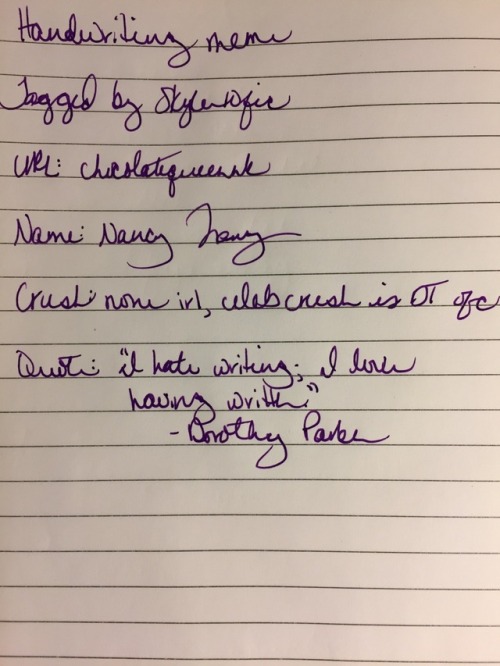 Handwriting meme
Tagged by Skyler10fic
URL: chocolatequeennk
Name: Nancy Nancy
Crush: none irl, celeb crush is DT ofc
Quote: "I hate writing; I love
having written."
- Dorothy Parker